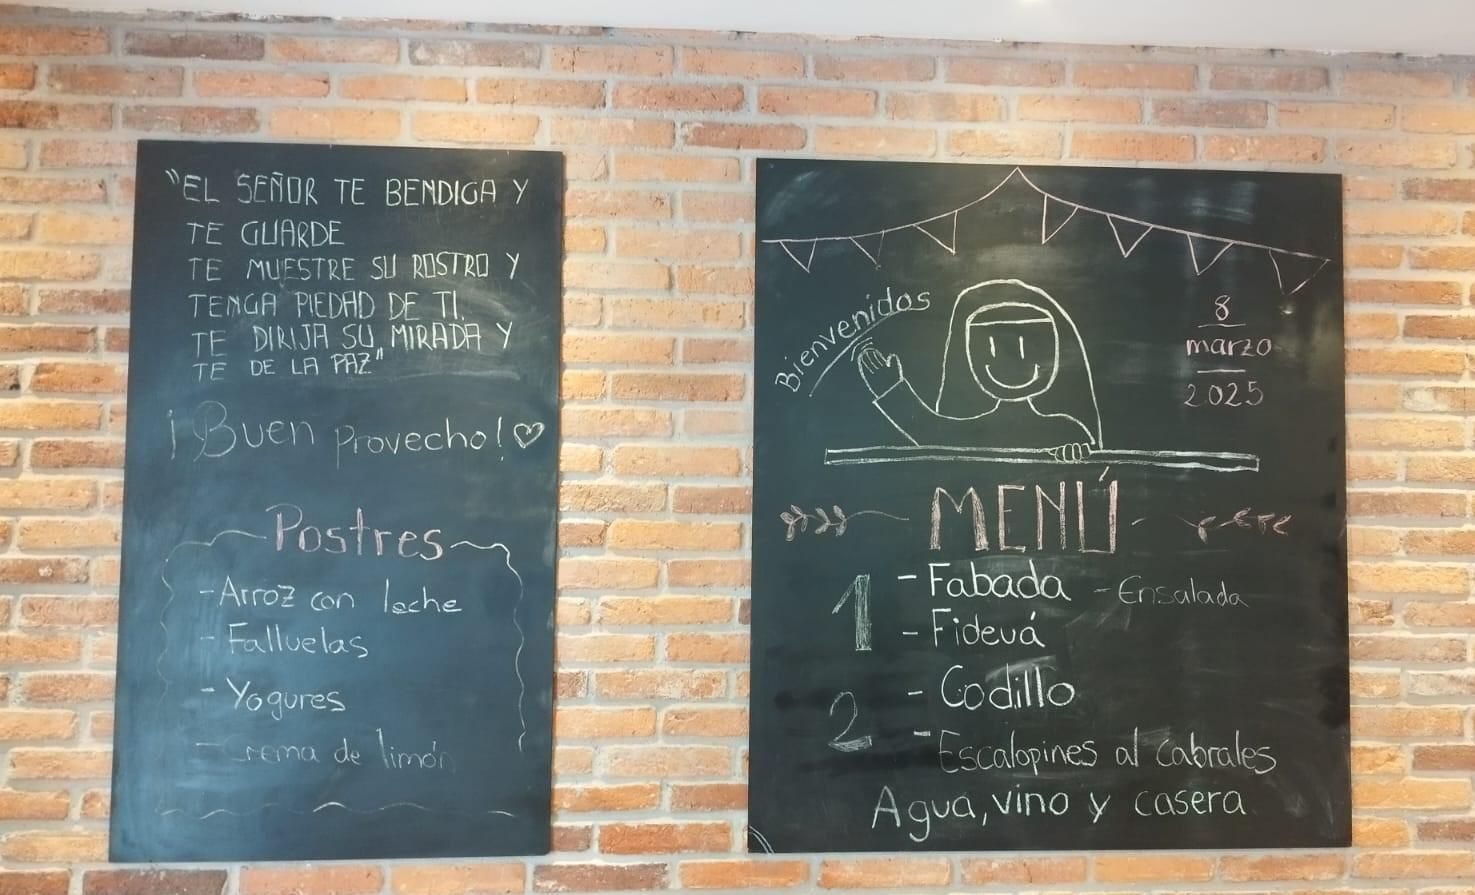 "EL SEÑOR TE BENDIGA Y
TE GUARDE
TE MUESTRE SU ROSTRO Y
TENGA PIEDAD DE TI.
TE DIRIJA SU MIRADA Y
TE DE LA PAZ"
¡Buen provecho!
Postres
- Arroz con leche
- Falluelas
- Yogures
- Crema de limón
Bienvenidos
8
marzo
2025
MENÚ
1 - Fabada - Ensalada
- Fideuá
2 - Codillo
- Escalopines al cabrales
Agua, vino y casera